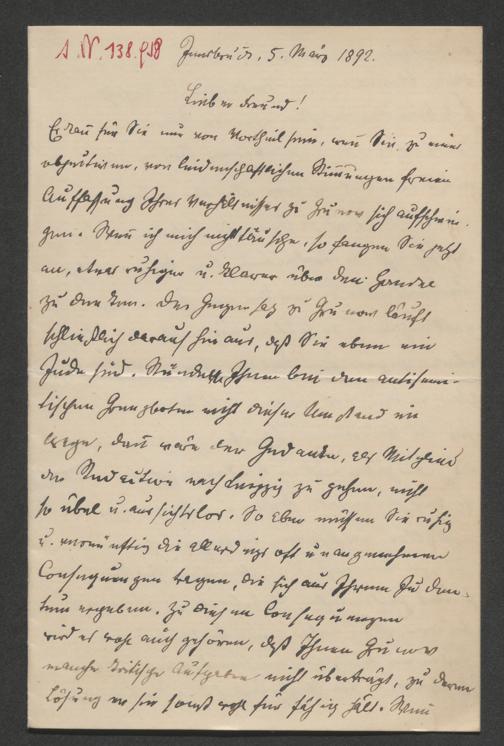 A. N. 138.958 Innsbruck, 5. März 1892.
Lieber Freund!
Es kann für Sie nur von Vortheil sein, wenn Sie zu einer
objectiven, von leidenschaftlichen Stimmungen freien
Auffassung Ihres Verhältnisses zu Grunow sich aufschwin-
gen. Wenn ich mich nicht täusche, so fangen Sie jetzt
an, etwas ruhiger u. klarer über den Handel
zu denken. Der Gegensatz zu Grunow läuft
schließlich darauf hinaus, daß Sie eben ein
Jude sind. Stünde Ihnen bei den antisemi-
tischen Grenzboten nicht dieser Umstand im
Wege, dann wäre der Gedanke, als Mitglied
der Redaction nach Leipzig zu gehen, nicht
so übel u. aussichtslos. So aber müssen Sie ruhig
u. vernünftig die allerdings oft unangenehmen
Consequenzen tragen, die sich aus Ihrem Juden-
tum ergeben. Zu diesen Consequenzen
wird es wohl auch gehören, daß Ihnen Grunow
manche kritische Aufgaben nicht überträgt, zu deren
Lösung er sie sonst wohl für fähig hält. Wenn